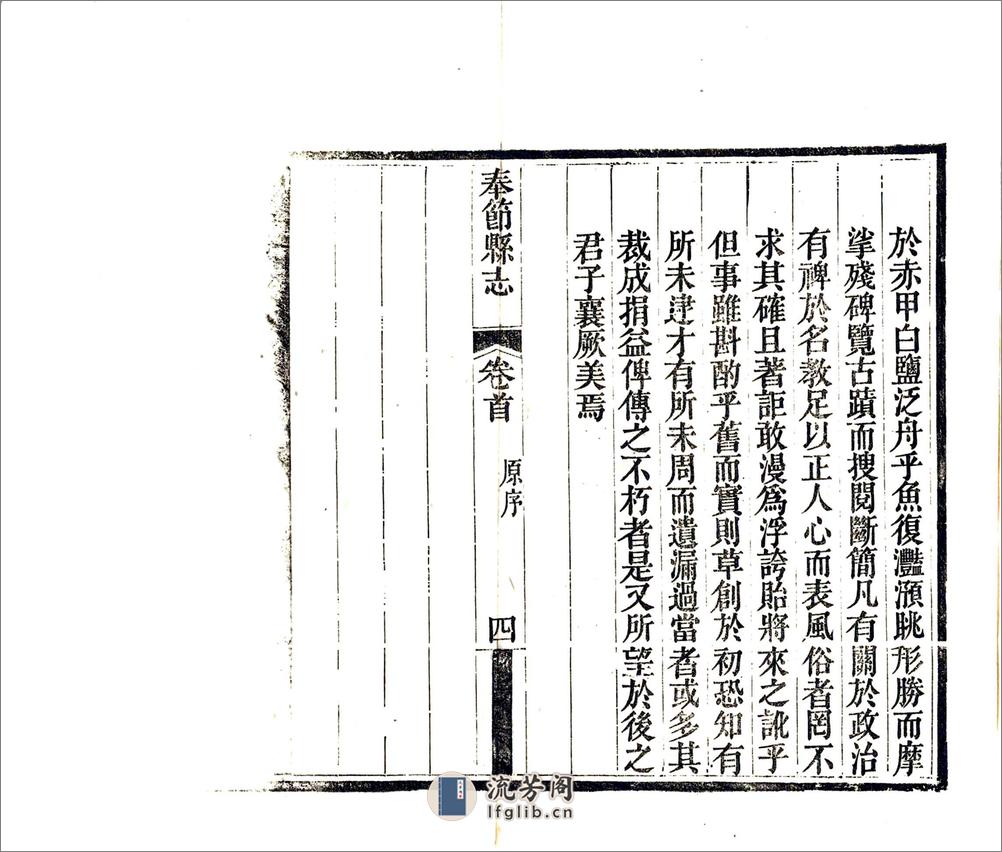 於赤甲白鹽泛舟乎魚復灩澦眺形勝而摩
挲殘碑覽古蹟而搜閱斷簡凡有關於政治
有禆於名教足以正人心而表風俗者罔不
求其確且著詎敢漫爲浮誇貽將來之訛乎
但事雖斟酌乎舊而實則草創於初恐知有
所未逮才有所未周而遺漏過當者或多其
裁成捐益俾傳之不朽者是又所望於後之
君子襄厥美焉
奉節縣志
卷首
原序
四
流芳阁
lfglib.cn